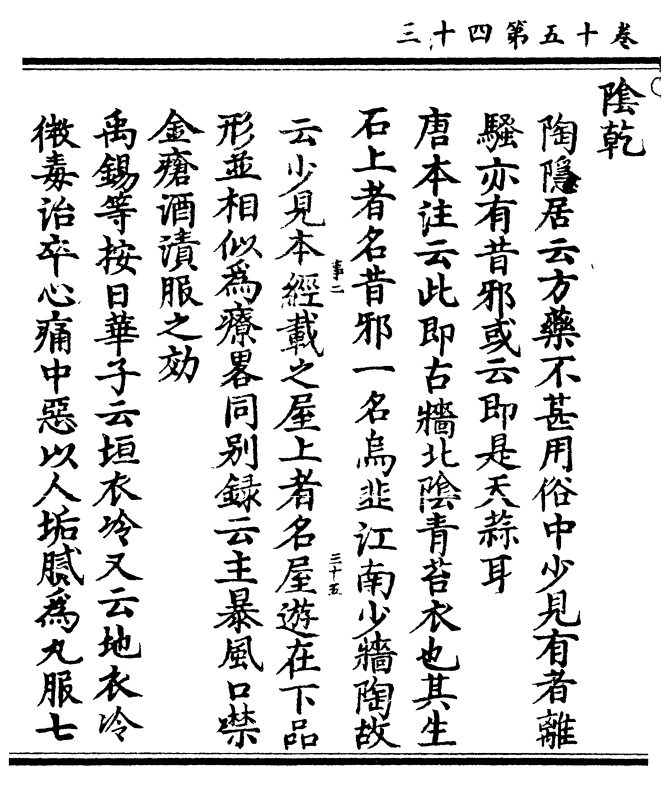 三十四第五十卷
陰乾
陶隱居云方藥不甚用俗中少見有者離
騷亦有昔邪或云即是天蒜耳
唐本注云此即古牆北陰青苔衣也其生
石上者名昔邪一名烏韭江南少牆陶故
事二
三十五
云少見本經載之屋上者名屋遊在下品
形並相似為療畧同别録云主暴風口噤
金瘡酒漬服之効
禹錫等按日華子云垣衣冷又云地衣冷
微毒治卒心痛中惡以人垢膩為丸服七